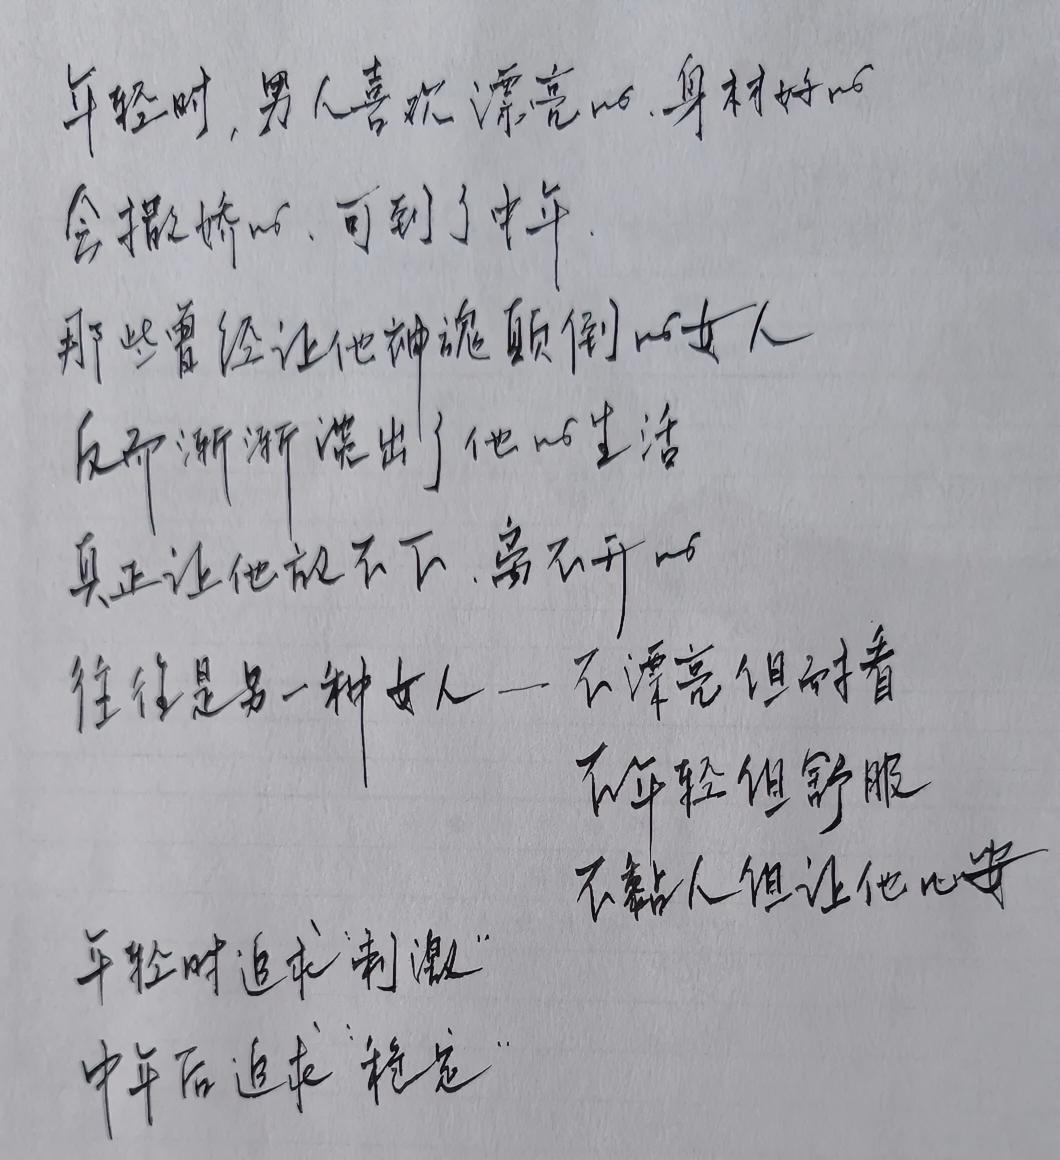 年轻时,男人喜欢漂亮的、身材好的
会撒娇的、可到了中年.
那些曾经让他神魂颠倒的女人
反而渐渐淡出了他的生活
真正让他放不下、离不开的
往往是另一种女人—不漂亮但耐看
不年轻但舒服
不黏人但让他心安
年轻时追求“刺激”
中年后追求“稳定”